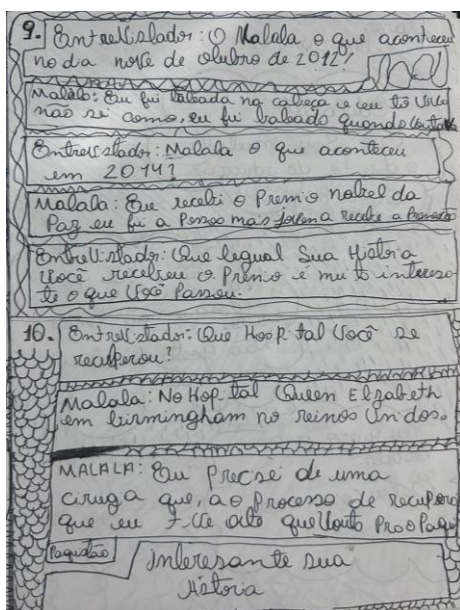 9. Entrevistador: O Malala o que aconteceu
no dia nove de olubro de 2012?
Malala: Eu fui baleada na cabeça e eu tô viva
não sei como, eu fui baleado quando voutava
Entrevistador: Malala o que aconteceu
em 2014?
Malala: Eu recebi o Premio nobel da
Paz eu fui a Pessoa mais jovem a recebe a
Entrevistador: Que legual Sua Historia
Você recebeu o Prêmio e muito intereso
te o que Você Passou.
10. Entrevistador: Que Hospital Você se
recuperou?
Malala: No Hopital Queen Elizabeth
em birmingham no reinos Unidos.
MALALA: Eu Precisei de uma
cirugia que, ao Processo de
que eu tive alta que Pro o Paqui
Paquistão
Interesante sua
Historia